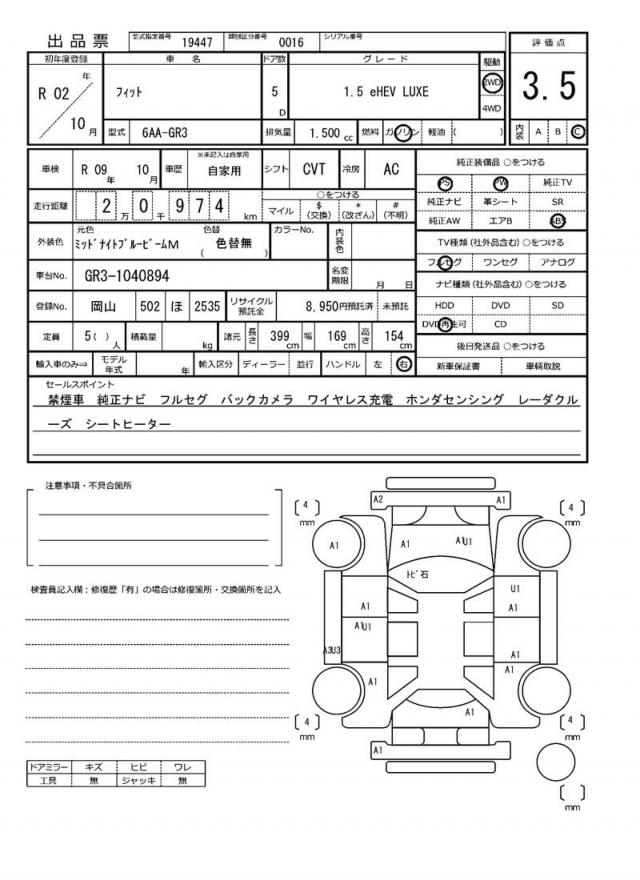 出品票 型式指定番号 19447 類別区分番号 0016 シリアル番号
評価点
3.5
内装 A B C
初年度登録 車名 ドア数 グレード 駆動
R 02 年 10 月
フィット 5 D 1.5 eHEV LUXE 2WD 4WD
型式 6AA-GR3 排気量 1.500 cc 燃料 ガソリン 軽油 ( )
車検 R 09 年 10 月 車歴 ※未記入は自家用 自家用 シフト CVT 冷房 AC
走行距離 2 万 0 千 9 7 4 km
○をつける
マイル $ (交換) * (改ざん) # (不明)
外装色 元色 ミッドナイトブルービームM 色替 ( 色替無 ) カラーNo. 内装色
車台No. GR3-1040894 名変期限 月 日
登録No. 岡山 502 ほ 2535 リサイクル預託金 8,950円預託済 未預託
定員 5( ) 人 積載量 kg 諸元 長さ 399 cm 幅 169 cm 高さ 154 cm
輸入車のみ⇒ モデル年式 年 輸入区分 ディーラー 並行 ハンドル 左 右
純正装備品 ○をつける
PS PW 純正TV
純正ナビ 革シート SR
純正AW エアB ABS
TV種類(社外品含む) ○をつける
フルセグ ワンセグ アナログ
ナビ種類(社外品含む) ○をつける
HDD DVD SD
DVD再生可 CD
後日発送品 ○をつける
新車保証書 車輌取説
セールスポイント
禁煙車 純正ナビ フルセグ バックカメラ ワイヤレス充電 ホンダセンシング レーダクル
ーズ シートヒーター
注意事項・不具合箇所
検査員記入欄:修復歴「有」の場合は修復箇所・交換箇所を記入
ドアミラー キズ ヒビ ワレ
工具 無 ジャッキ 無
A2 A1
[ 4 ] mm [ 4 ] mm
A1 A1 A1U1
トビ石
A1 U1 A1
A1U1
A3U3 A1
A1 A1
A1
[ 4 ] mm [ 4 ] mm
A1
[ ] mm